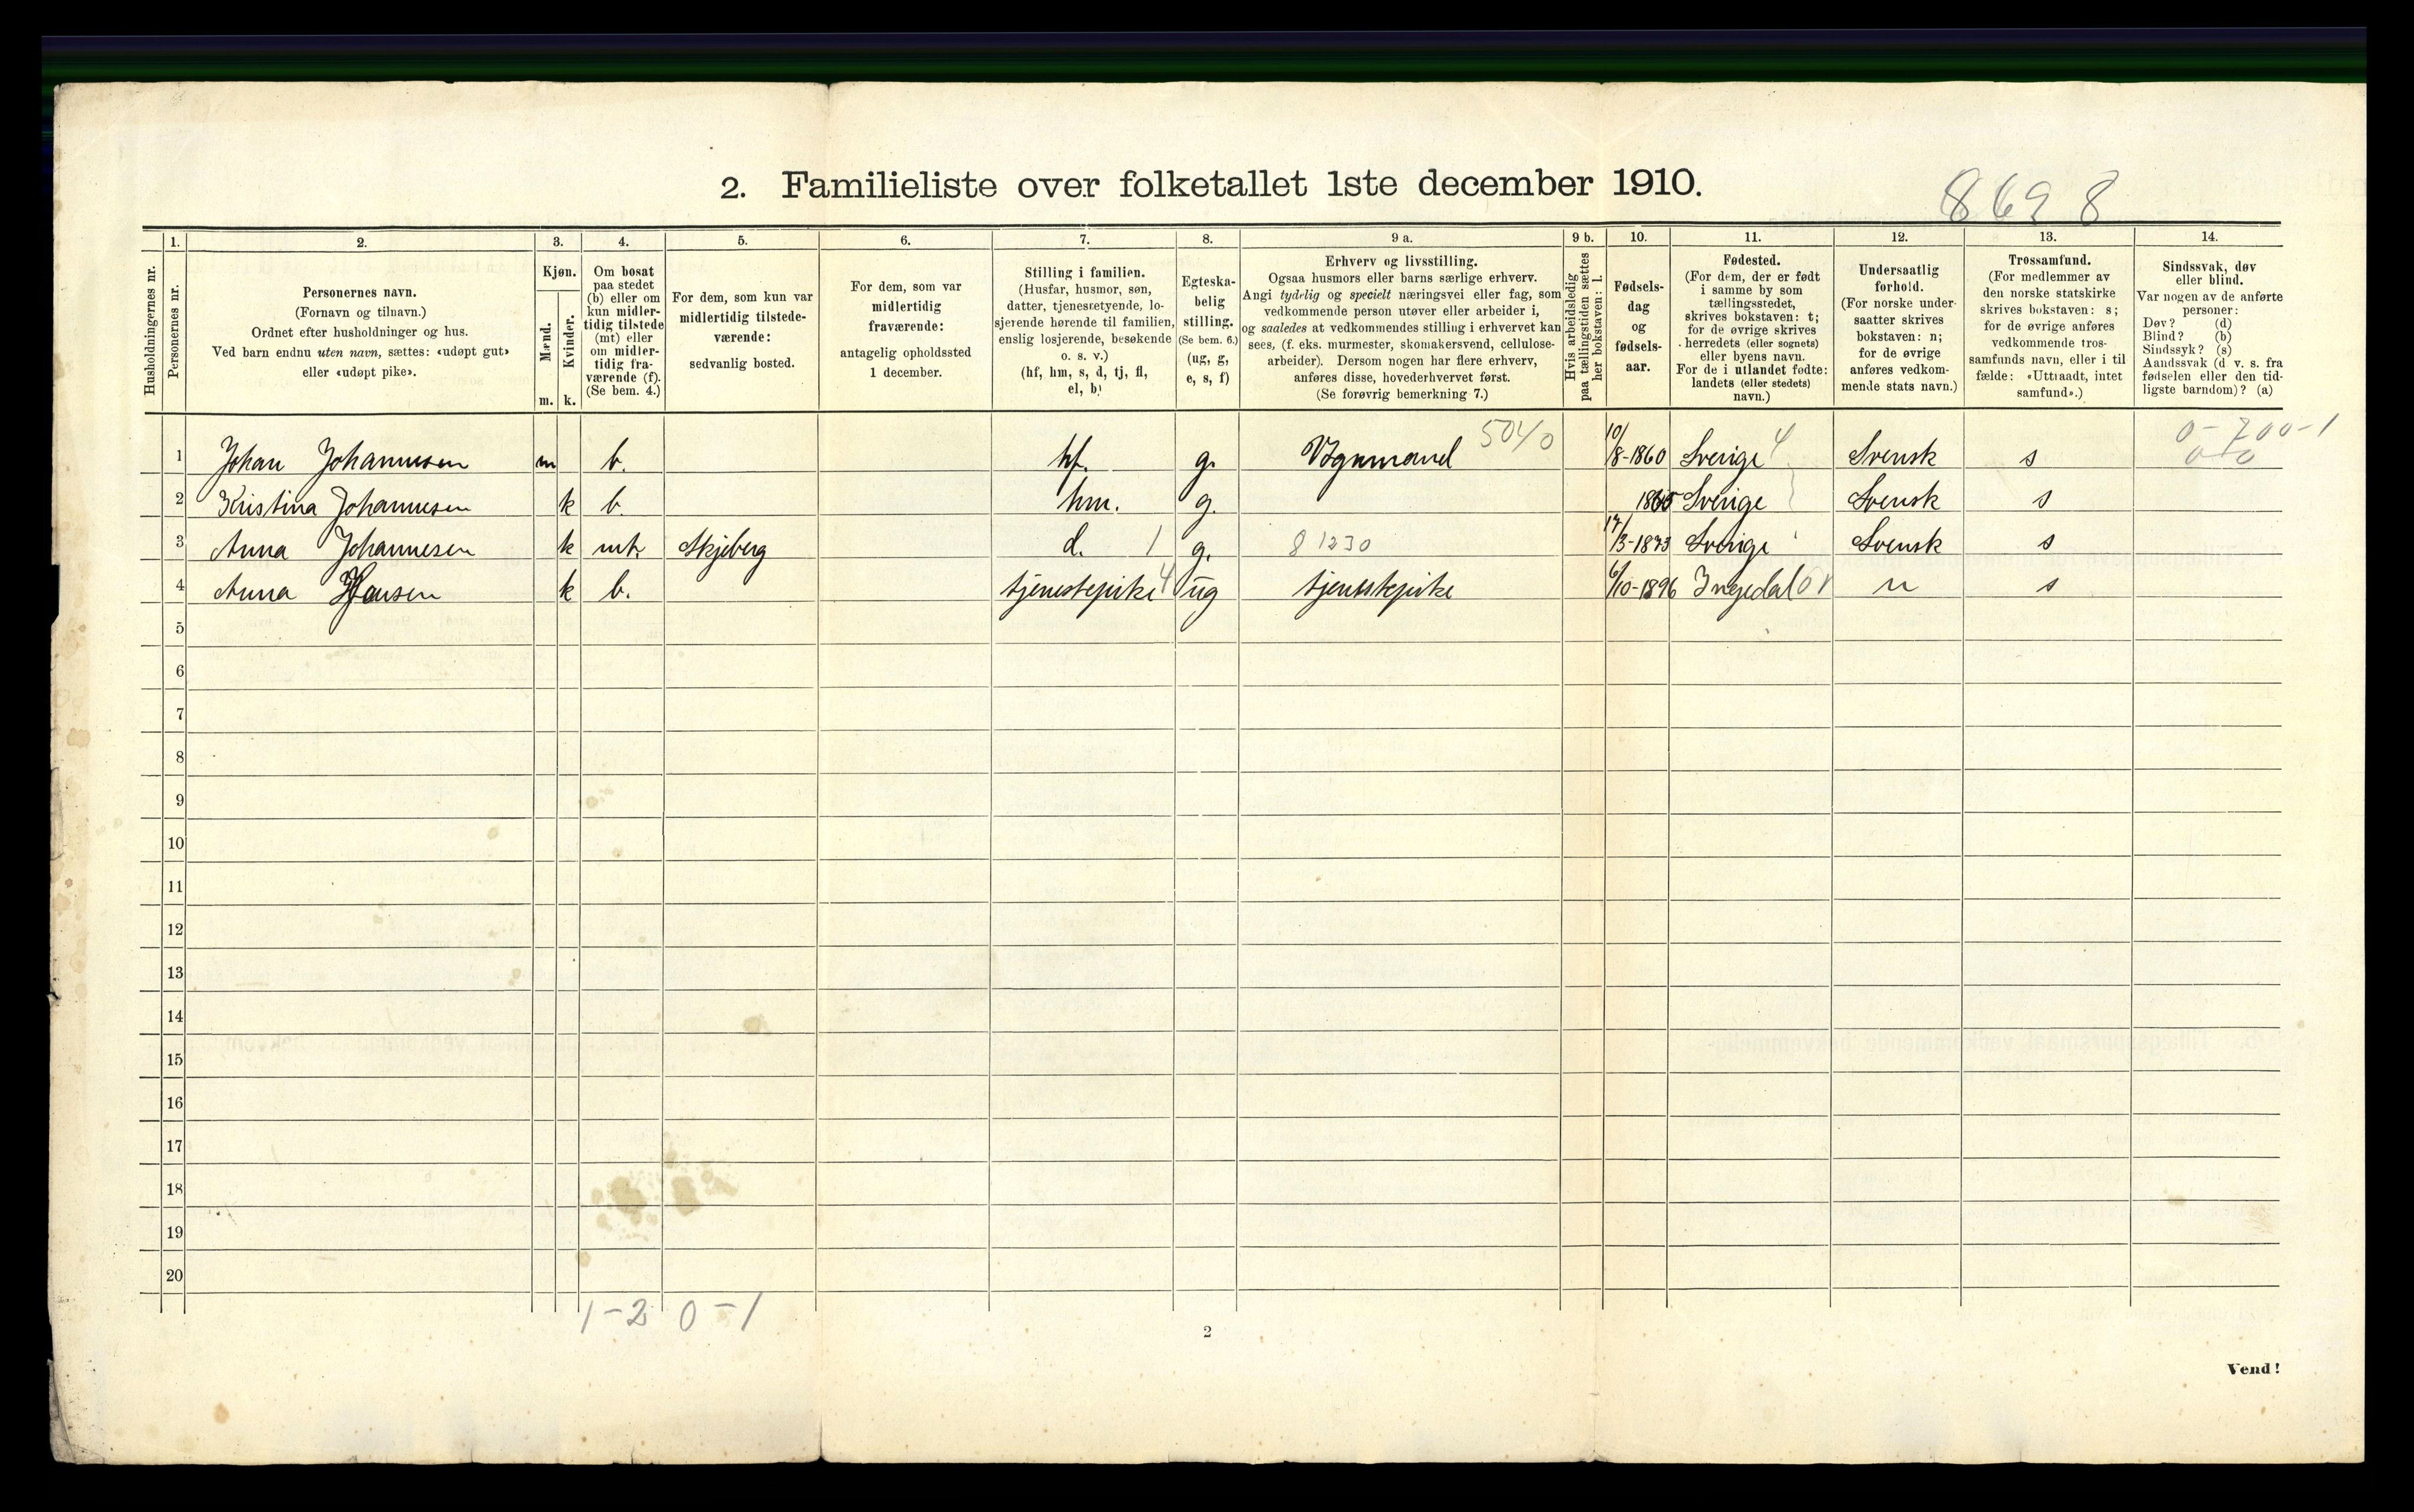 2. Familieliste over folketallet 1ste december 1910.
8698
Husholdningernes nr.
1. Personernes nr.
2. Personernes navn. (Fornavn og tilnavn.) Ordnet efter husholdninger og hus. Ved barn endnu uten navn, sættes: «udøpt gut» eller «udøpt pike».
3. Kjøn. Mænd. m. Kvinder. k.
4. Om bosat paa stedet (b) eller om kun midler-tidig tilstede (mt) eller om midler-tidig fra-værende (f). (Se bem. 4.)
5. For dem, som kun var midlertidig tilstede-værende: sedvanlig bosted.
6. For dem, som var midlertidig fraværende: antagelig opholdssted 1 december.
7. Stilling i familien. (Husfar, husmor, søn, datter, tjenestetyende, lo-sjerende hørende til familien, enslig losjerende, besøkende o. s. v.) (hf, hm, s, d, tj, fl, el, b)
8. Egteska-belig stilling. (Se bem. 6.) (ug, g, e, s, f)
9 a. Erhverv og livsstilling. Ogsaa husmors eller barns særlige erhverv. Angi tydelig og specielt næringsvei eller fag, som vedkommende person utøver eller arbeider i, og saaledes at vedkommendes stilling i erhvervet kan sees, (f. eks. murmester, skomakersvend, cellulose-arbeider). Dersom nogen har flere erhverv, anføres disse, hovederhvervet først. (Se forøvrig bemerkning 7.)
9 b. Hvis arbeidsledig paa tællingstiden sættes her bokstaven: l.
10. Fødsels-dag og fødsels-aar.
11. Fødested. (For dem, der er født i samme by som tællingsstedet, skrives bokstaven: t; for de øvrige skrives herredets (eller sognets) eller byens navn. For de i utlandet fødte: landets (eller stedets) navn.)
12. Undersaatlig forhold. (For norske under-saatter skrives bokstaven: n; for de øvrige anføres vedkom-mende stats navn.)
13. Trossamfund. (For medlemmer av den norske statskirke skrives bokstaven: s; for de øvrige anføres vedkommende tros-samfunds navn, eller i til fælde: «Uttraadt, intet samfund».)
14. Sindssvak, døv eller blind. Var nogen av de anførte personer: Døv? (d) Blind? (b) Sindssyk? (s) Aandssvak (d. v. s. fra fødselen eller den tid-ligste barndom)? (a)
5040 0-200-1
1 Johan Johannesen m b. hf. g. Vognmand 10/8-1860 Sverige 4 Svensk s 0-0
2 Kristina Johannesen k b. hm. g. 1865 Sverige Svensk s
3 Anna Johannesen k mt. Skjeberg d. 1 g. 8 1230 17/3-1893 Sverige Svensk s
4 Anna Hansen k b. tjenestepike 4 ug tjenestepike 6/10-1896 Ingedal 01 n s
5
6
7
8
9
10
11
12
13
14
15
16
17
18
19
20
1-2 0-1
2
Vend!